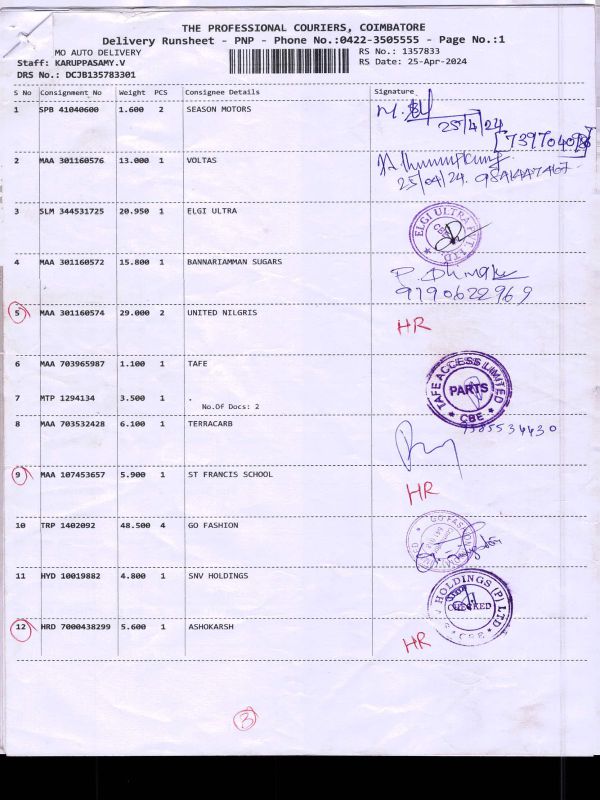 THE PROFESSIONAL COURIERS, COIMBATORE
Delivery Runsheet - PNP - Phone No.:0422-3505555 - Page No.:1
MO AUTO DELIVERY
RS No.: 1357833
Staff: KARUPPASAMY.V
RS Date: 25-Apr-2024
DRS No.: DCJB135783301
S No Consignment No Weight PCS Consignee Details Signature
1 SPB 41040600 1.600 2 SEASON MOTORS
25/4/24
2 MAA 301160576 13.000 1 VOLTAS
25/04/24.
3 SLM 344531725 20.950 1 ELGI ULTRA ELGI ULTRA PVT LTD.
4 MAA 301160572 15.800 1 BANNARIAMMAN SUGARS
9190622969
5 MAA 301160574 29.000 2 UNITED NILGRIS HR
6 MAA 703965987 1.100 1 TAFE TAFE ACCESS LIMITED
PARTS
* CBE *
7 MTP 1294134 3.500 1 .
No.Of Docs: 2
8 MAA 703532428 6.100 1 TERRACARB
9 MAA 107453657 5.900 1 ST FRANCIS SCHOOL HR
10 TRP 1402092 48.500 4 GO FASHION GO FASHION
11 HYD 10019882 4.800 1 SNV HOLDINGS HOLDINGS (P) LTD
CHECKED
* CBE *
12 HRD 7000438299 5.600 1 ASHOKARSH HR
3